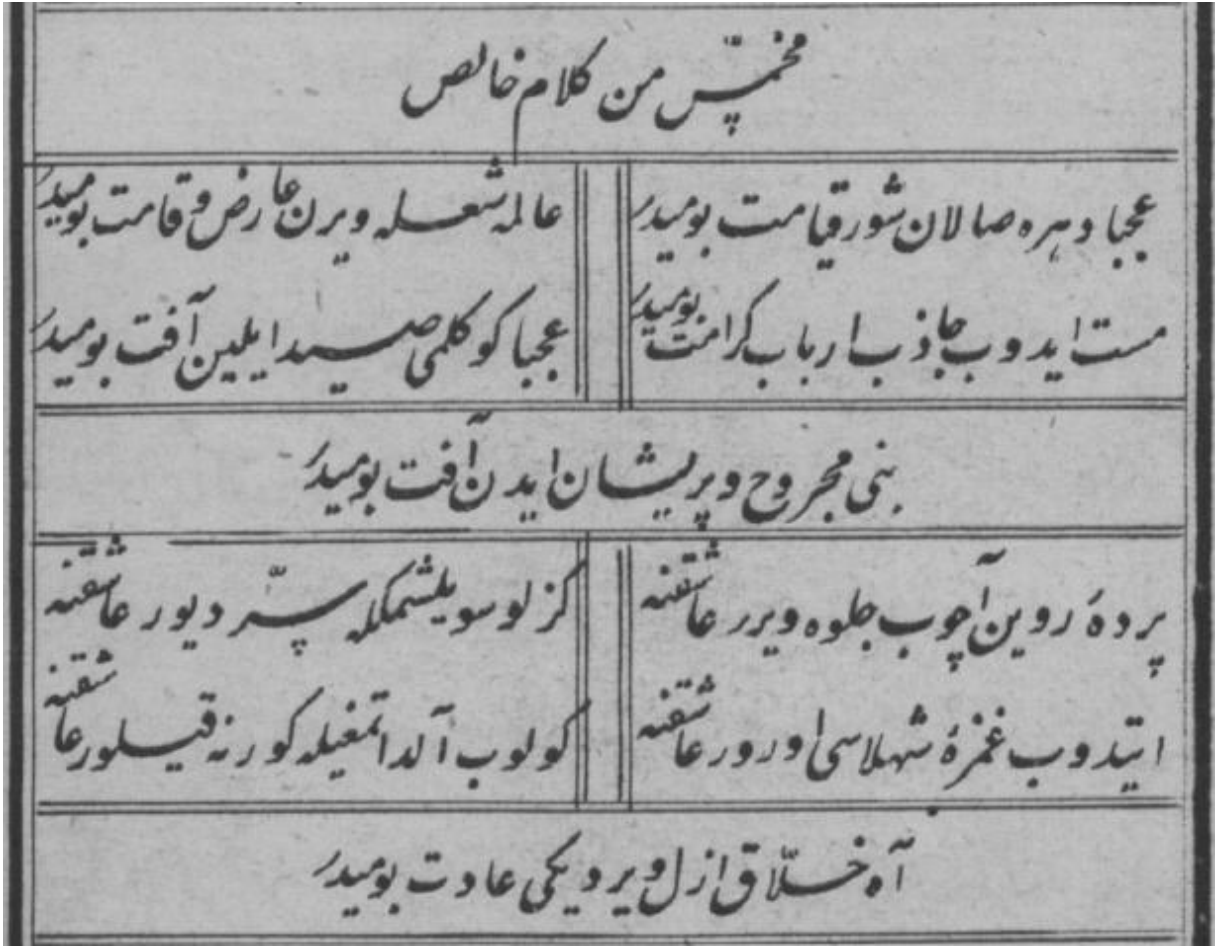 مخمّس من كلام خالص
عجبا دهره صالان شور قيامت بوميدر
عالمه شعله ويرن عارض و قامت بوميدر
مست ايدوب جاذب ارباب كرامت بوميدر
عجبا كوكلمى صيد ايلين آفت بوميدر
بنى مجروح و پريشان ايدن آفت بوميدر
پردۀ روين آچوب جلوه ويرر عاشقنه
كزلو سويلشمكله سرّ ديور عاشقنه
ايتدوب غمزۀ شهلاسى اورور عاشقنه
كولوب آلداتمغيله كور نه قيلور عاشقنه
آه خلّاق ازل ويرديكى عادت بوميدر